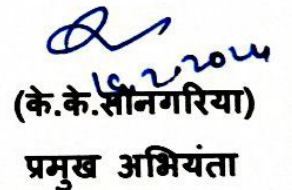 16.2.2024
(के.के.सोनगरिया)
प्रमुख अभियंता